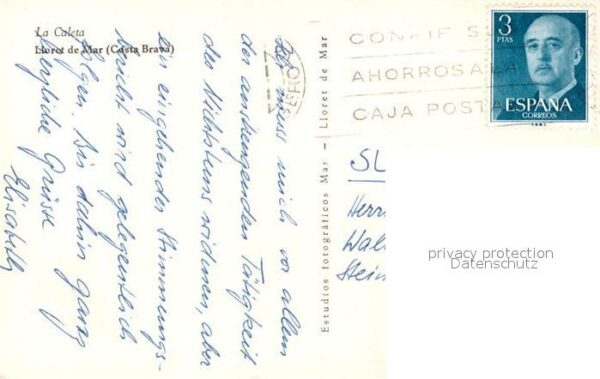 La Caleta
Lloret de Mar (Costa Brava)
muss mich vor allem
der anstrengenden Tätigkeit
des Nichtstuns widmen, aber
ein eingehender Stimmungs-
bericht wird gelegentlich
folgen. Bis dahin ganz
herzliche Grüsse
Elisabeth
Estudios fotográficos Mas — Lloret de Mar
CONFIE S
AHORROS A LA
CAJA POSTA
3
PTAS
ESPAÑA
CORREOS
Herr
Wal
Stein
privacy protection
Datenschutz